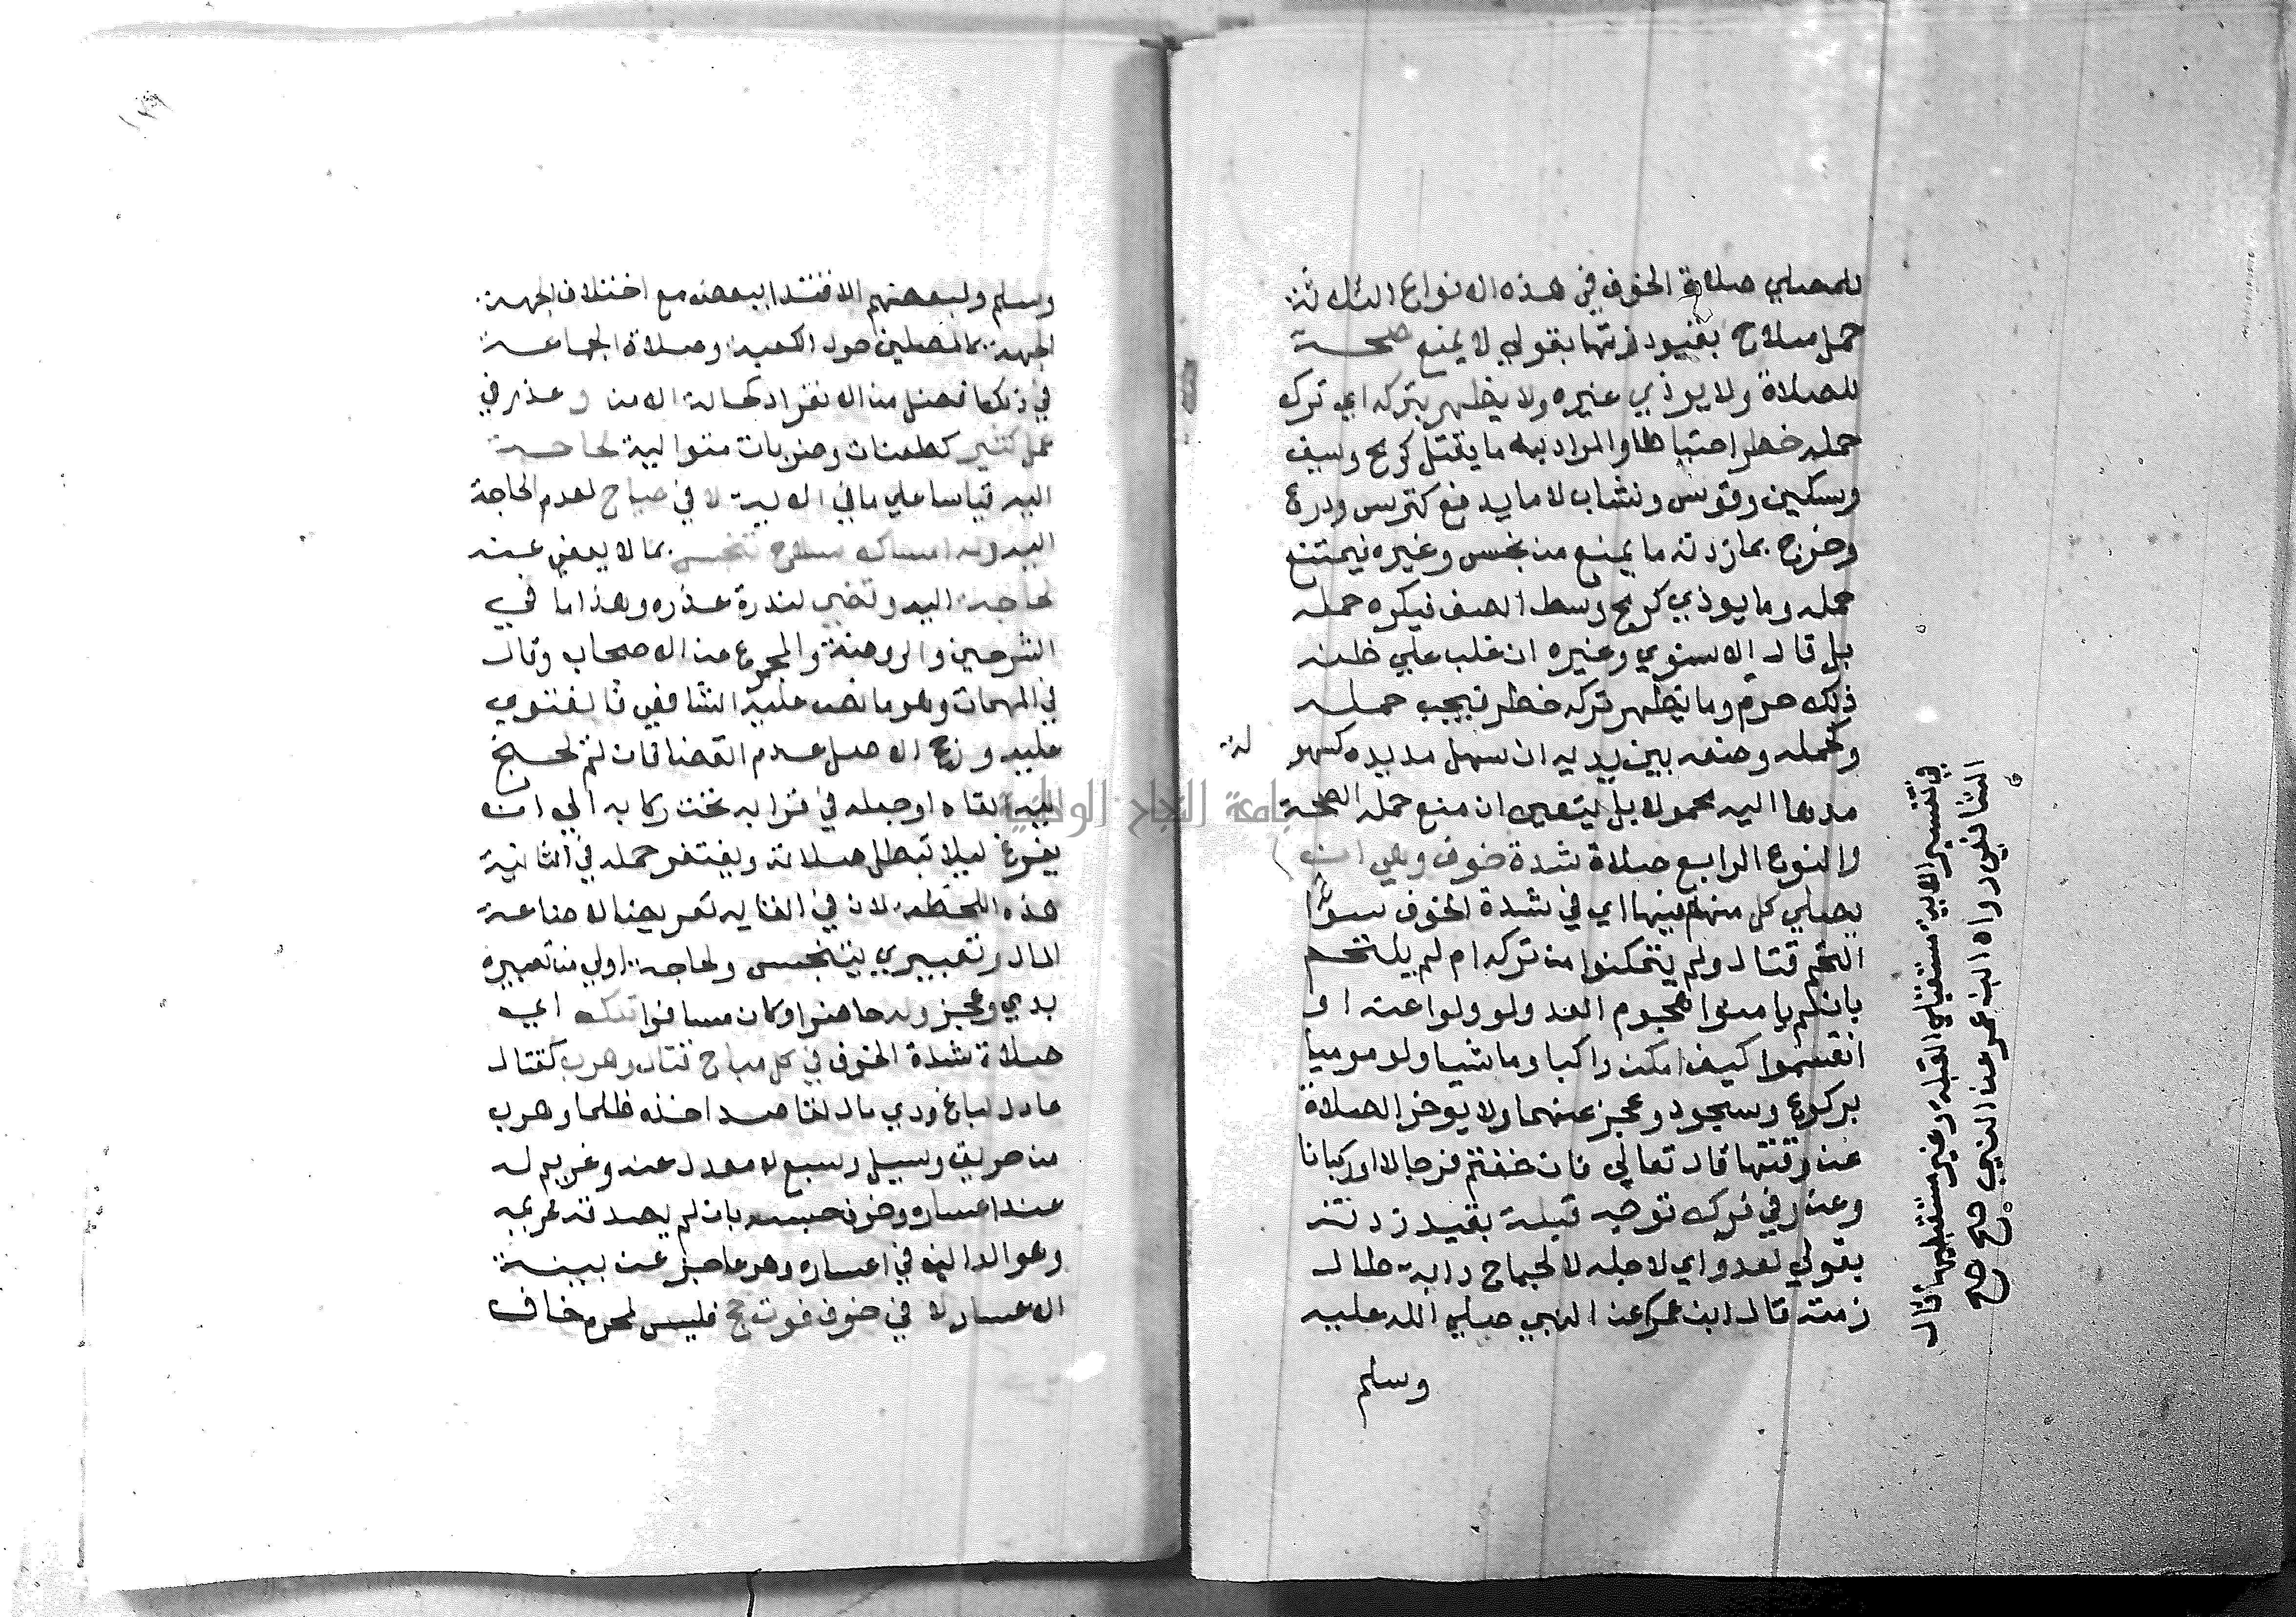 للمصلي صلاة الخوف في هذه الانواع الثلاثة
حمل سلاح بقيود زدتها بقولي لا يمنع صحة
للصلاة ولا يوذي غيره ولا يظهر بتركه اي ترك
حمله خطر احتياطا والمراد به ما يقتل كرمح وسيف
وسكين وقوس ونشاب لا ما يدفع كترس ودرع
وخرج بما زدته ما يمنع من نجس وغيره فيمتنع
حمله وما يوذي كرمح وسط الصف فيكره حمله
بل قال الاسنوي وغيره ان غلب علي ظنه
ذلك حرم وما يظهر تركه خطر فيجب حمله
وكحمله وضعه بين يديه ان سهل مد يده كسهو لة
مدها اليه محمولا بل يتعين ان منع حمله الصحة
والنوع الرابع صلاة شدة خوف وهي ان
يصلي كل منهم فيها اي في شدة الخوف سوآ
التحم قتال ولم يتمكنوا من تركه ام لم يلتحم
بان لم يامنوا هجوم العدو لو ولوا عنه او
انقسموا كيف امكن راكبا وماشيا ولو موميا
بركوع وسجود وعجز عنهما ولا يوخر الصلاة
عن وقتها قال تعالي فان خفتم فرجالا او ركبانا
وعذر في ترك توجه قبلة بقيد زدته
بقولي لعدو اي لاجله لا لجماح دابة طال
زمنه قال ابن عمر عن النبي صلي الله عليه
وسلم
في تفسير الاية مستقبلي القبلة وغير مستقبليها قال
الشافعي رواه ابن عمر عن النبي صح صح
وسلم ولبعضهم الاقتدا ببعض مع اختلاف الجهة
الجهة كالمصلين حول الكعبة وصلاة الجماعة
في ذلك افضل من الانفراد كحالة الامن وعذر في
عمل كثير كطعنات وضربات متوالية لحاجة
اليه قياسا علي ما في الاية لا في صياح لعدم الحاجة
اليه وله امساك سلاح تنجس بما لا يعفي عنه
لحاجة اليه وقضي لندرة عذره وهذا ما في
الشرحين والروضة والمجموع عن الاصحاب وقال
في المهمات وهو ما نص عليه الشافعي فالفتوي
عليه ورجح الاصل عدم القضا فان لم يحتج
اليه القاه او جعله في قرابه تحت ركابه الي ان
يفرغ ليلا تبطل صلاته ويغتفر حمله في الثانية
هذه اللحظة لان في القايه تعريضا لاضاعة
المال وتعبيري بتنجس ولحاجة اولي من تعبيره
بدمي وعجز وله حاضرا وكان مسافرا تلك اي
صلاة شدة الخوف في كل مباح قتال وهرب كقتال
عادل لباغ وذي مال لقاصد اخذه ظلما وهرب
من حريق وسيل وسبع لا معدل عنه وغريم له
عند اعساره وخوف حبسه بان لم يصدقه غريمه
وهو الداين في اعساره وهو عاجز عن بينة
الاعسار لا في خوف فوت حج فليس لمحرم خاف
جامعة النجاح الوطنية